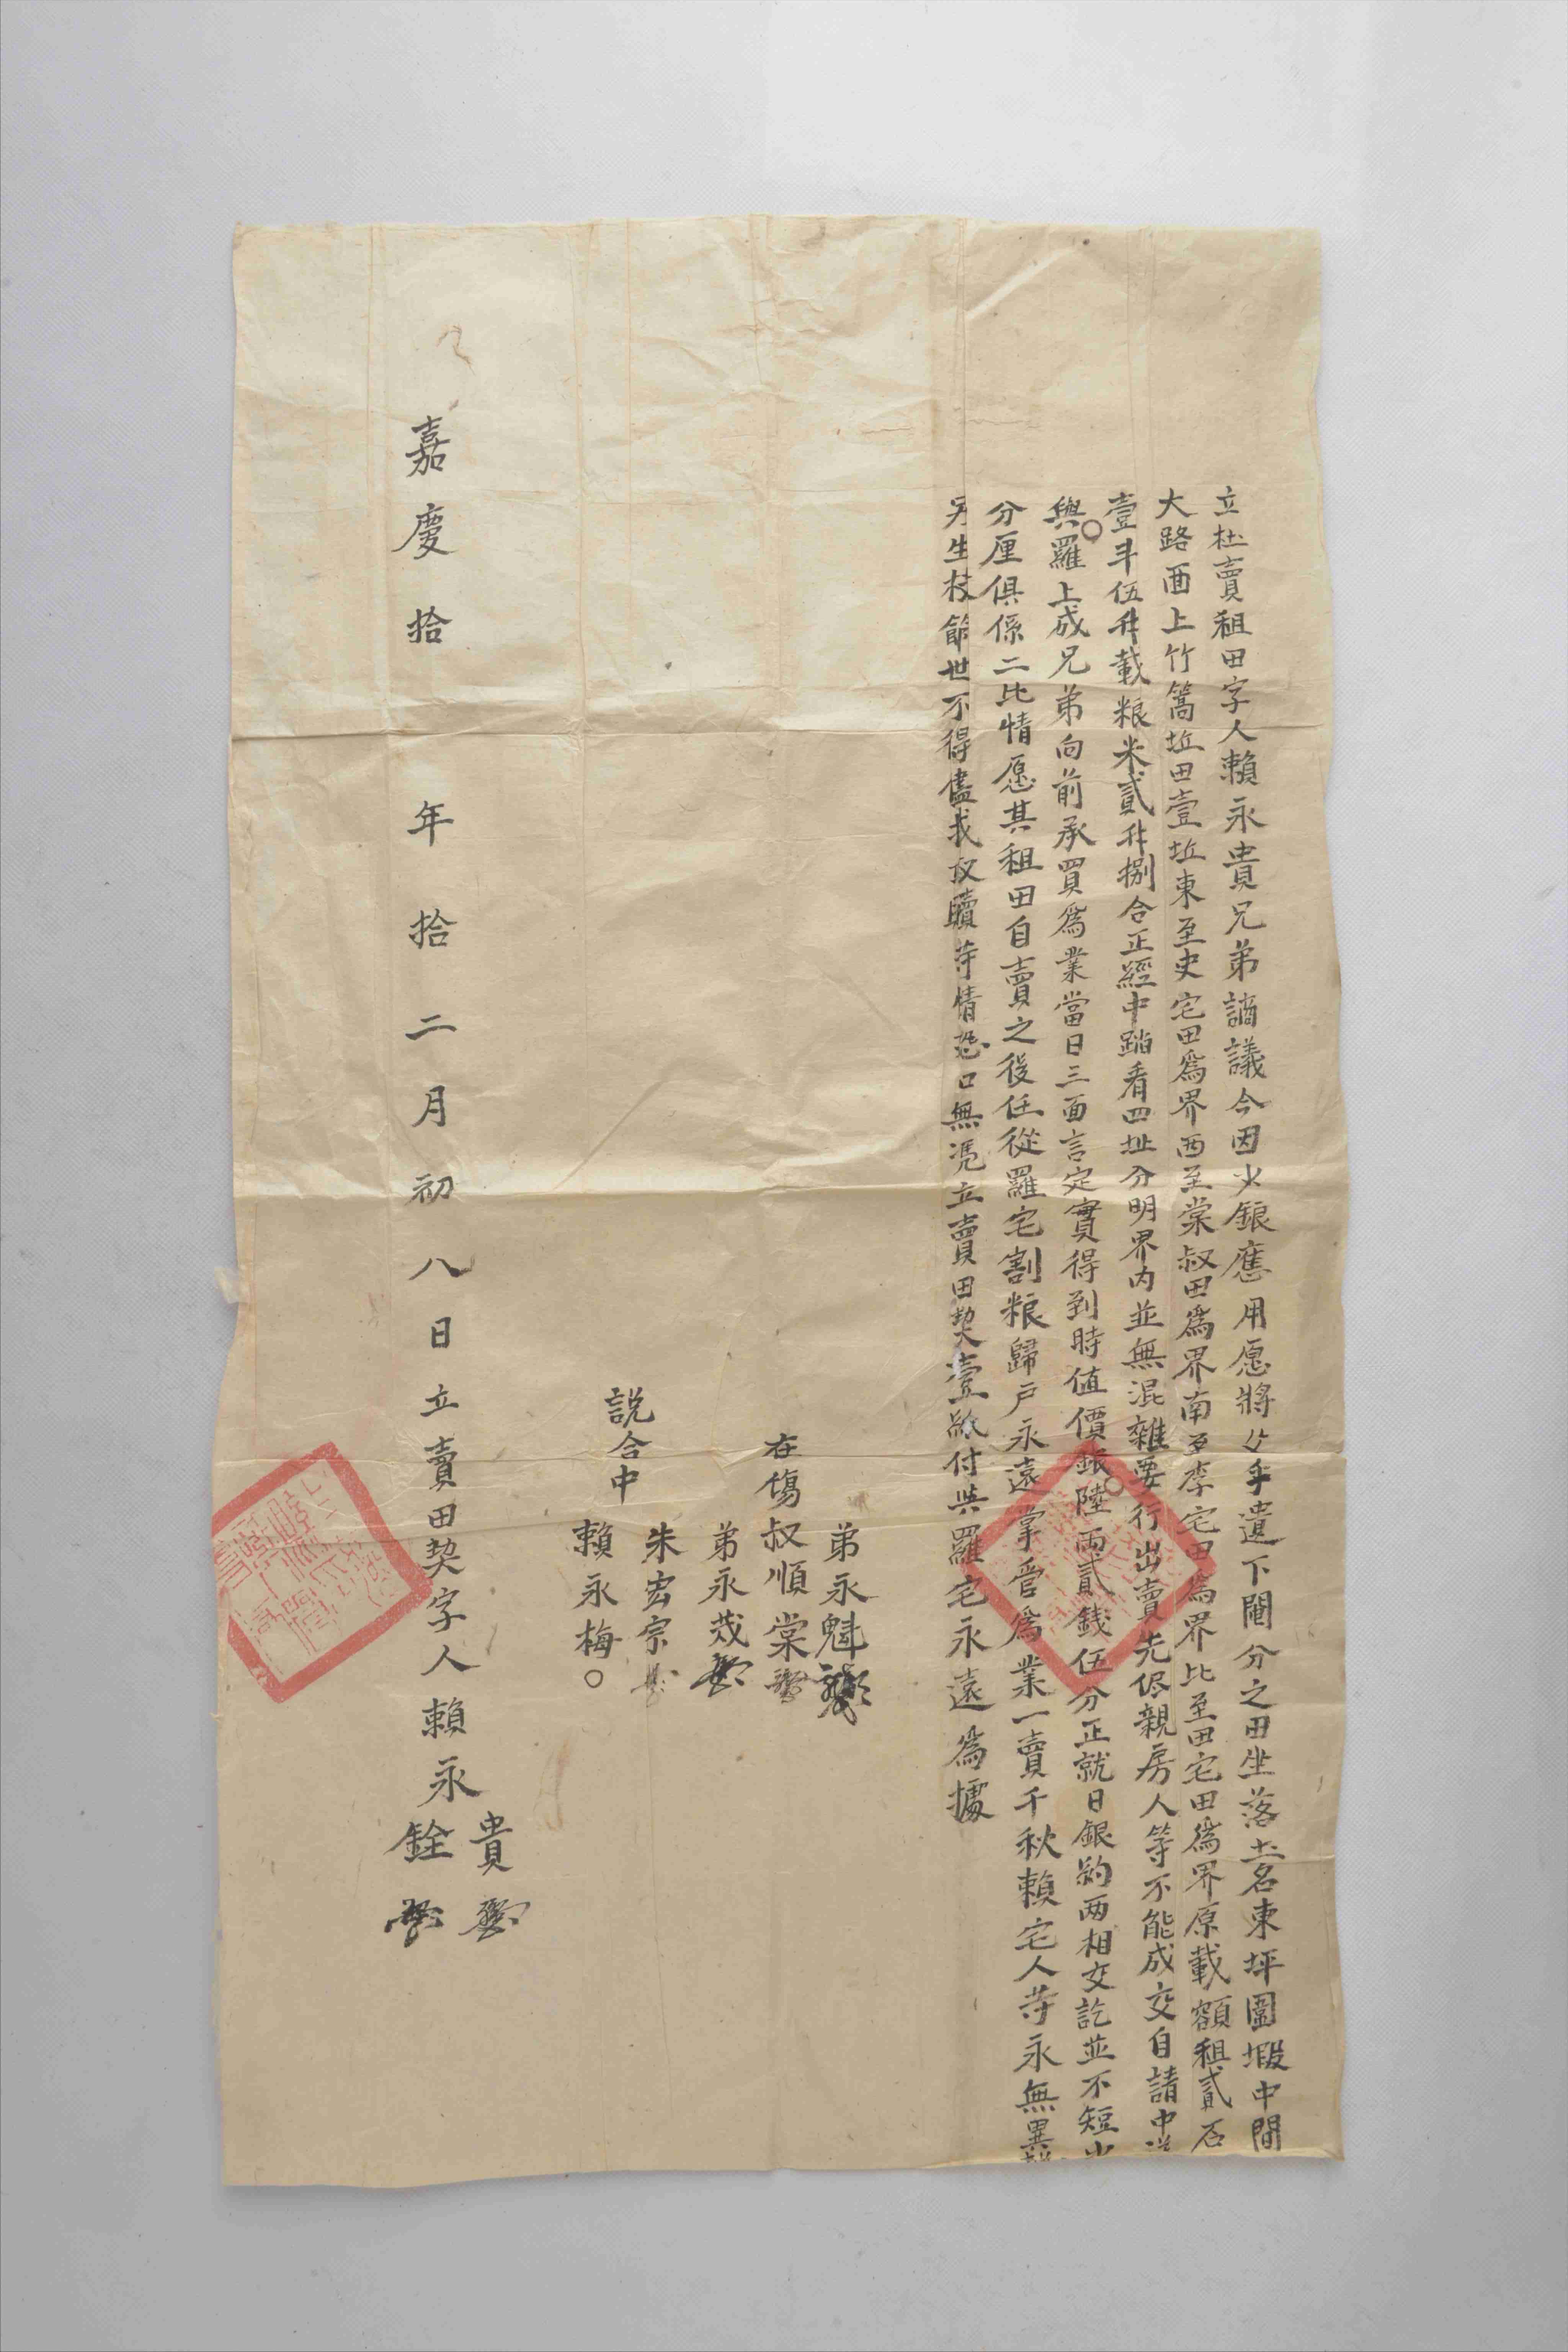 立杜賣租田字人賴永貴兄弟謫議今因少銀應用愿將父手遺下鬮分之田坐落土名東坪圖塅中間
大路面上竹篙坵田壹坵東至史宅田爲界西至棠叔田爲界南至李宅田爲界比至田宅田爲界原載額租貳石
壹斗伍升載粮米貳升捌合正經中踏看四址分明界内並無混雜要行出賣先侭親房人等不能成交自請中
與羅上成兄弟向前承買爲業當日三面言定實得到時值價銀陸両貳錢伍分正就日銀約両相交訖並不短少
分厘俱係二比情愿其租田自賣之後任從羅宅割粮歸户永遠掌管爲業一賣千秋賴宅人等永無異
另生枝節世不得儘找取贖等情恐口無凴立賣田契壹紙付與羅宅永遠爲據
弟永魁
在傷叔順棠
弟永茂
朱宏宗
説合中
賴永梅〇
嘉慶拾年拾二月初八日立賣田契字人賴永貴
銓